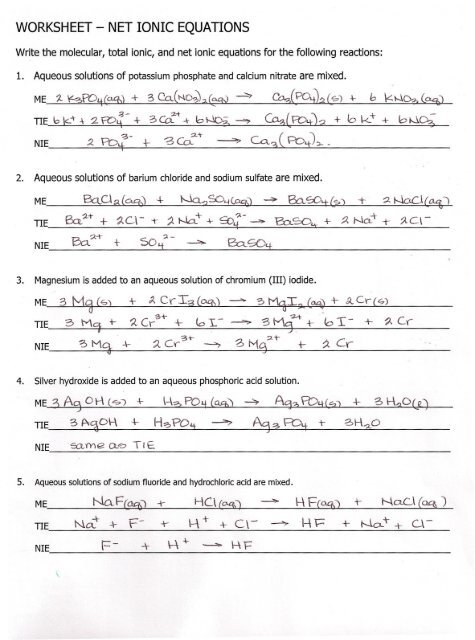 WORKSHEET – NET IONIC EQUATIONS
Write the molecular, total ionic, and net ionic equations for the following reactions:
1. Aqueous solutions of potassium phosphate and calcium nitrate are mixed.
ME 2 K₃PO₄(aq) + 3 Ca(NO₃)₂(aq) → Ca₃(PO₄)₂(s) + 6 KNO₃(aq)
TIE 6K⁺ + 2PO₄³⁻ + 3Ca²⁺ + 6NO₃⁻ → Ca₃(PO₄)₂ + 6K⁺ + 6NO₃⁻
NIE 2 PO₄³⁻ + 3 Ca²⁺ → Ca₃(PO₄)₂.
2. Aqueous solutions of barium chloride and sodium sulfate are mixed.
ME BaCl₂(aq) + Na₂SO₄(aq) → BaSO₄(s) + 2NaCl(aq)
TIE Ba²⁺ + 2Cl⁻ + 2Na⁺ + SO₄²⁻ → BaSO₄ + 2Na⁺ + 2Cl⁻
NIE Ba²⁺ + SO₄²⁻ → BaSO₄
3. Magnesium is added to an aqueous solution of chromium (III) iodide.
ME 3 Mg(s) + 2 CrI₃(aq) → 3 MgI₂(aq) + 2 Cr(s)
TIE 3 Mg + 2 Cr³⁺ + 6I⁻ → 3Mg²⁺ + 6I⁻ + 2 Cr
NIE 3 Mg + 2 Cr³⁺ → 3 Mg²⁺ + 2 Cr
4. Silver hydroxide is added to an aqueous phosphoric acid solution.
ME 3 AgOH(s) + H₃PO₄(aq) → Ag₃PO₄(s) + 3H₂O(l)
TIE 3 AgOH + H₃PO₄ → Ag₃PO₄ + 3H₂O
NIE same as TIE
5. Aqueous solutions of sodium fluoride and hydrochloric acid are mixed.
ME NaF(aq) + HCl(aq) → HF(aq) + NaCl(aq)
TIE Na⁺ + F⁻ + H⁺ + Cl⁻ → HF + Na⁺ + Cl⁻
NIE F⁻ + H⁺ → HF